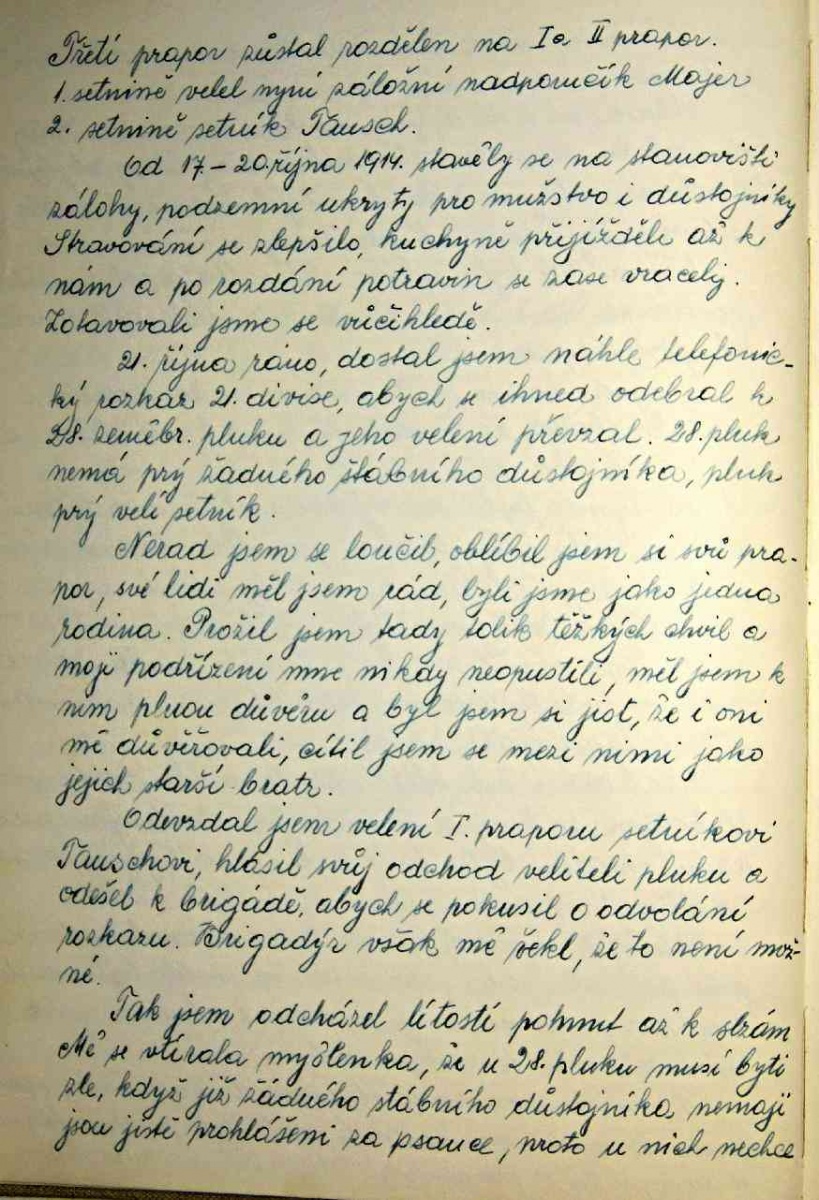 Třetí prapor zůstal rozdělen na I a II prapor.
1. setnině velel nyní záložní nadporučík Majer
2. setnině setník Täusch.
Od 17.–20. října 1914. stavěly se na stanovišti
zálohy, podzemní ukryty pro mužstvo i důstojníky
Stravování se zlepšilo, kuchyně přijížděli až k
nám a po rozdání potravin se zase vracely.
Zotavovali jsme se vůčihledě.
21. října ráno, dostal jsem náhle telefonic-
ký rozkaz 21. divise, abych se ihned odebral k
28. zeměbr. pluku a jeho velení převzal. 28. pluk
nemá prý žadného štábního důstojníka, pluk
prý velí setník.
Nerad jsem se loučil, oblíbil jsem si svů pra-
por, své lidi měl jsem rád, byli jsme jako jedna
rodina. Prožil jsem tady tolik těžkých chvil a
moji podřízení mne nikdy neopustili, měl jsem k
nim plnou důvěru a byl jsem si jist, že i oni
mě důvěřovali, cítil jsem se mezi nimi jako
jejich starší bratr.
Odevzdal jsem velení I. praporu setníkovi
Täuschovi, hlásil svůj odchod veliteli pluku a
odešel k brigádě, abych se pokusil o odvolání
rozkazu. Brigadýr však mě řekl, že to není mož-
né.
Tak jsem odcházel lítostí pohnut až k slzám
Mě se vtírala myšlenka, že u 28. pluku musí býti
zle, když již žádného stábního důstojníka nemají
jsou jistě prohlášeni za psance, proto u nich nechce